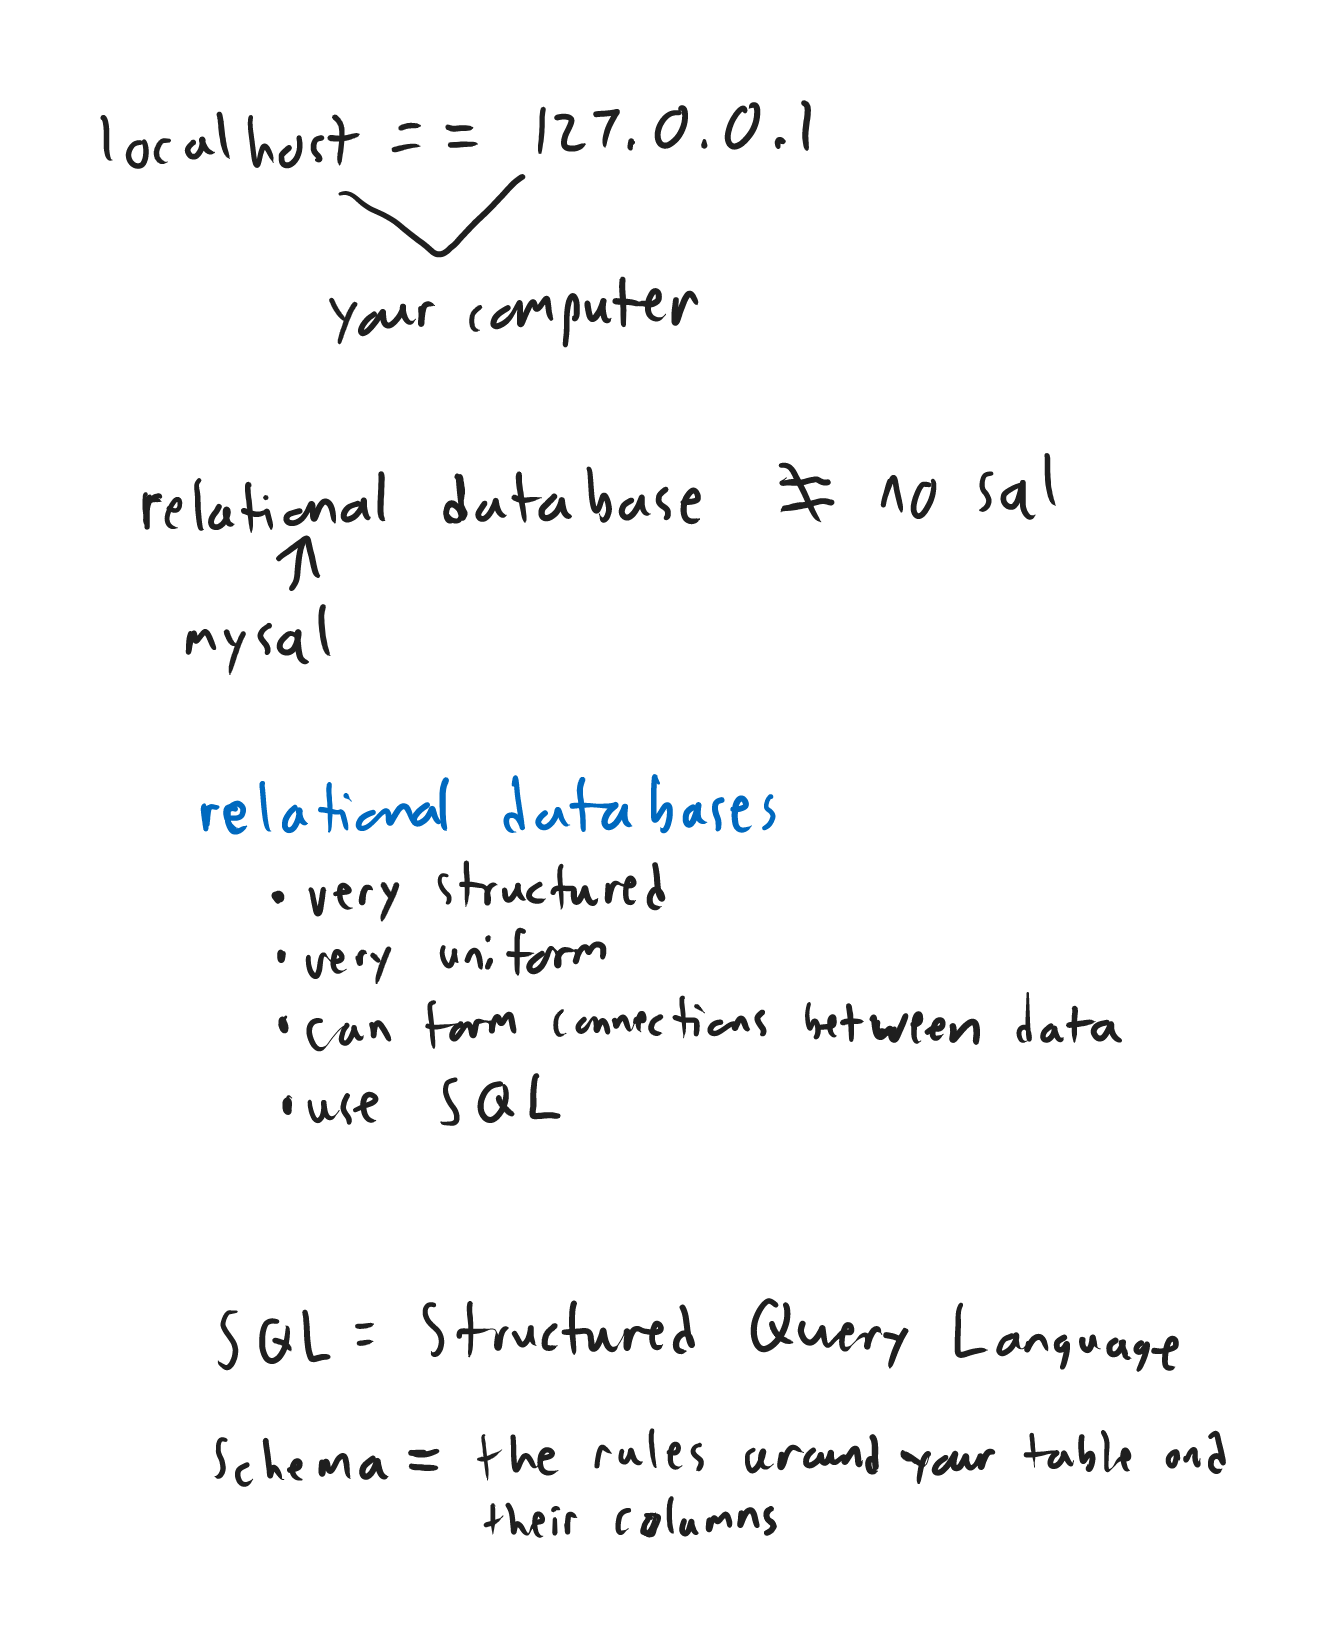 localhost == 127.0.0.1
your computer
relational database ≠ no sql
mysql
relational databases
• very structured
• very uniform
• can form connections between data
• use SQL
SQL = Structured Query Language
Schema = the rules around your table and
their columns